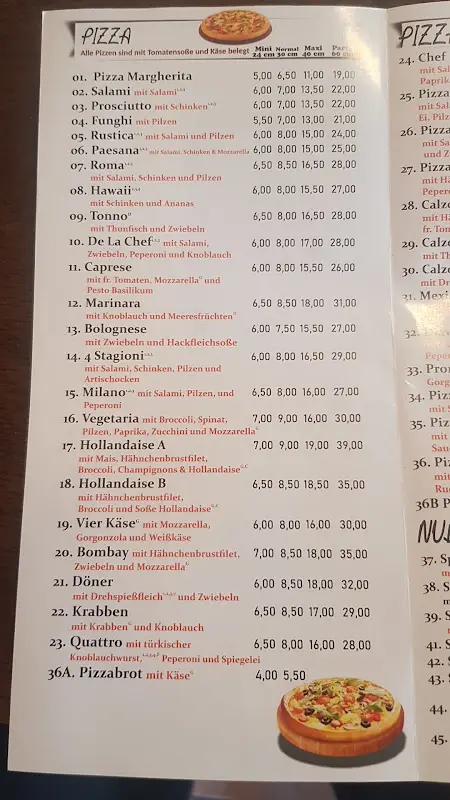 PIZZA
Alle Pizzen sind mit Tomatensoße und Käse belegt
Mini Normal Maxi
24 cm 30 cm 40 cm 60
01. Pizza Margherita 5,00 6,50 11,00 19,00
02. Salami mit Salami 6,00 7,00 13,50 22,00
03. Prosciutto mit Schinken 6,00 7,00 13,50 22,00
04. Funghi mit Pilzen 5,50 7,00 13,00 21,00
05. Rustica mit Salami und Pilzen 6,00 8,00 15,00 24,00
06. Paesana mit Salami, Schinken & Mozzarella 6,00 8,00 15,00 25,00
07. Roma 6,50 8,50 16,50 28,00
mit Salami, Schinken und Pilzen
08. Hawaii 6,00 8,00 15,50 27,00
mit Schinken und Ananas
09. Tonno 6,50 8,00 16,50 28,00
mit Thonfisch und Zwiebeln
10. De La Chef mit Salami, 6,00 8,00 17,00 28,00
Zwiebeln, Peperoni und Knoblauch
11. Caprese 6,00 8,00 15,50 26,00
mit fr. Tomaten, Mozzarella und
Pesto Basilikum
12. Marinara 6,50 8,50 18,00 31,00
mit Knoblauch und Meeresfrüchten
13. Bolognese 6,00 7,50 15,50 27,00
mit Zwiebeln und Hackfleichsoße
14. 4 Stagioni 6,00 8,00 16,50 29,00
mit Salami, Schinken, Pilzen und
Artischocken
15. Milano mit Salami, Pilzen, und 6,50 8,00 16,00 27,00
Peperoni
16. Vegetaria mit Broccoli, Spinat, 7,00 9,00 16,00 30,00
Pilzen, Paprika, Zucchini und Mozzarella
17. Hollandaise A 7,00 9,00 19,00 39,00
mit Mais, Hähnchenbrustfilet,
Broccoli, Champignons & Hollandaise
18. Hollandaise B 6,50 8,50 18,50 35,00
mit Hähnchenbrustfilet,
Broccoli und Soße Hollandaise
19. Vier Käse mit Mozzarella, 6,00 8,00 16,00 30,00
Gorgonzola und Weißkäse
20. Bombay mit Hähnchenbrustfilet, 7,00 8,50 18,00 35,00
Zwiebeln und Mozzarella
21. Döner 6,00 8,50 18,00 32,00
mit Drehspießfleich und Zwiebeln
22. Krabben 6,50 8,50 17,00 29,00
mit Krabben und Knoblauch
23. Quattro mit türkischer 6,50 8,00 16,00 28,00
Knoblauchwurst, Peperoni und Spiegelei
36A. Pizzabrot mit Käse 4,00 5,50
24. Chef
25. Pizza
26. Pizza
27. Pizza
28. Calzo
29. Calzo
30. Calzo
31. Mexi
32.
33. Pro
34. Piz
35. Piz
36. Pi
36B P
37. S
38. S
39. S
41. S
42. S
43. S
44.
45.